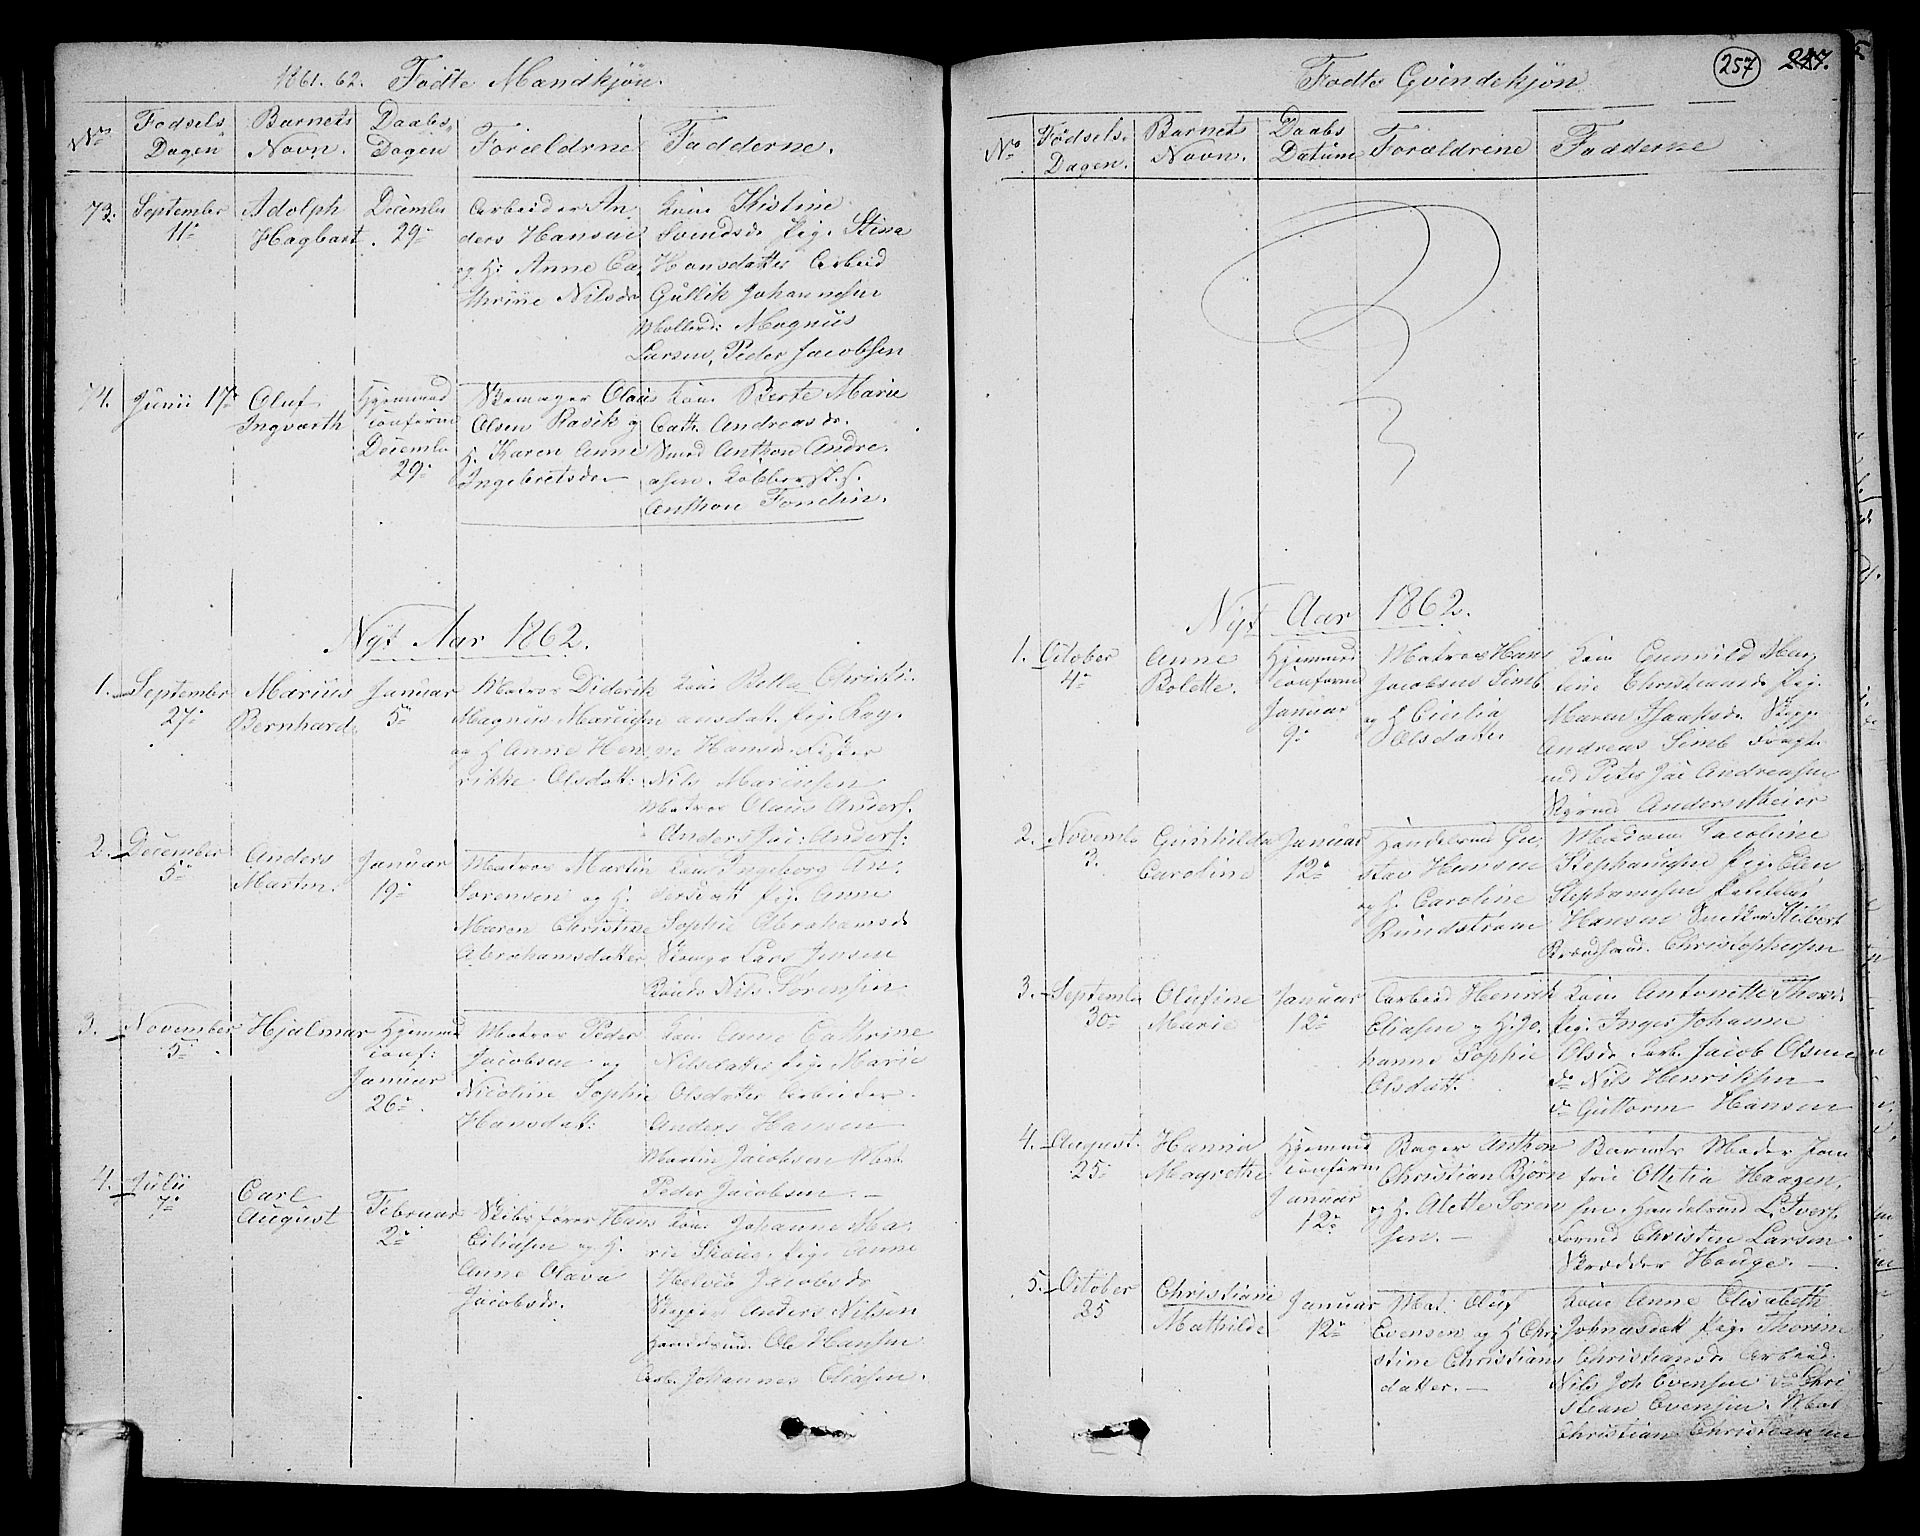 1861. 62. Fødte Mandkjøn.
No
Fødsels Dagen
Barnets Navn.
Daabs Dagen
Forældrne
Fadderne.
73. September 11te
Adolph Hagbart
Decembe 29de
Arbeider An
ders Hansen
og H: Anne Ca
thrine Nilsdr
Kone Kistine
Svendsdr Pig. Stina
Hansdatter Arbeid
Gullik Johannesen
Møllersv: Magnus
Larsen, Peder Jacobsen
74. Junii 17de
Oluf Ingvarth
Hjemmed conferm Decembe 29de
Skomager Olaus
Olsen Ravik og
H. Karen Anne
Ingebretsdr
Kone Berte Marie
Cath. Andreasdr.
Smed Anthon Andre
asen. Kobberst. S.
Anthon
Nyt Aar 1862.
1. September 27de
Marius Bernhard
Januar 5te
Matros Diderik
Magnus Mariusen
og H Anne Hen
rikke Olsdatt:
Kone Christi
ansdatt. Pig.
Hansdr Fisker
Nils Mariusen
Matros Olaus Anders.
Anders Jac: Anders:
2. December 5te
Anders Martin.
Januar 19de
Matros Martin
Sørensen og H:
Maren Christine
Abrahamsdatter
Kone Ingeborg An
dersdatt Pig. Anne
Sophie Abrahamsdr
Skomag Lars Jensen
Nils Sørensen
3. November 5te
Hjalmar
Hjemmed conf: Januar 26de
Matros Peder
Jacobsen og
Nicoline Sophie
Hansdatt:
Kone Anne Cathrine
Nilsdatter Pig. Marie
Olsdatter Arbeider
Anders Hansen
Martin Jacobsen Mat
Peder Jacobsen.
4. Julii 7de
Carl August
Februar 2de
Skibsfører Hans
Eiliasen og H.
Anne Olava
Jacobsdr.
Kone Johanne Ma
rie Skoug. Pig. Anne
Helvig Jacobsdr
Skipper Anders Nilsen
Handelsmd. Ole Hansen
Arb. Johannes Eliasen.
257 247.
Fødte Qvindekjøn
No
Fødsels Dagen.
Barnets Navn.
Daabs Datum
Forældrene
Fadderne
Nyt Aar 1862.
1. October 4de
Anne Bolette.
Hjemmed conferm Januar 9de
Matros Hans
Jacobsen Semb
og H Cicilia
Olsdatter
Kone Gunnild Mar
tine Christiansdr Pig.
Maren Isaaksdr Skipp
Andreas Semb
Peter Jac Andreasen
Anders Meier
2. Novemb 3.
Gunhilda Caroline
Januar 12te
Handelsmd Gu
stav Hansen
og H. Caroline
Rundstrøm
Madam Jacobine
Stephansen Pig. Elen
Stephansen
Hansen Snedker
Christophersen
3. Septemb 30te
Olufine Marie
Januar 12te
Arbeid Henrik
Eliasen og H: Jo
hanne Sophie
Olsdatt.
Kone Antonette Thorsdr
Pig. Inger Johanne
Olsdr Arb. Jacob Olsen
do Nils Henriksen
do Guttorm Hansen
4. August. 25de
Hanna Magrethe
Hjemmed conferm Januar 12te
Bager Anthon
Christian Bjørn
og H. Alette Søren
sen.
Barnets Moder Jom
frue Ottelia Haagen
sen. Handelsmd L. Ivers.
Christen Larsen
Skrædder Hauge.
5. October 25
Christiane Mathilde
Januar 12te
Mat. Oluf
Evensen og H Chri
stine Christians
datter.
Kone Anne Elisabeth
Johnasdatt Pig. Thorine
Christiansdr Arbeid.
Nils Joh Evensen do Chri
stian Evensen. Mat
Christian Christiansen